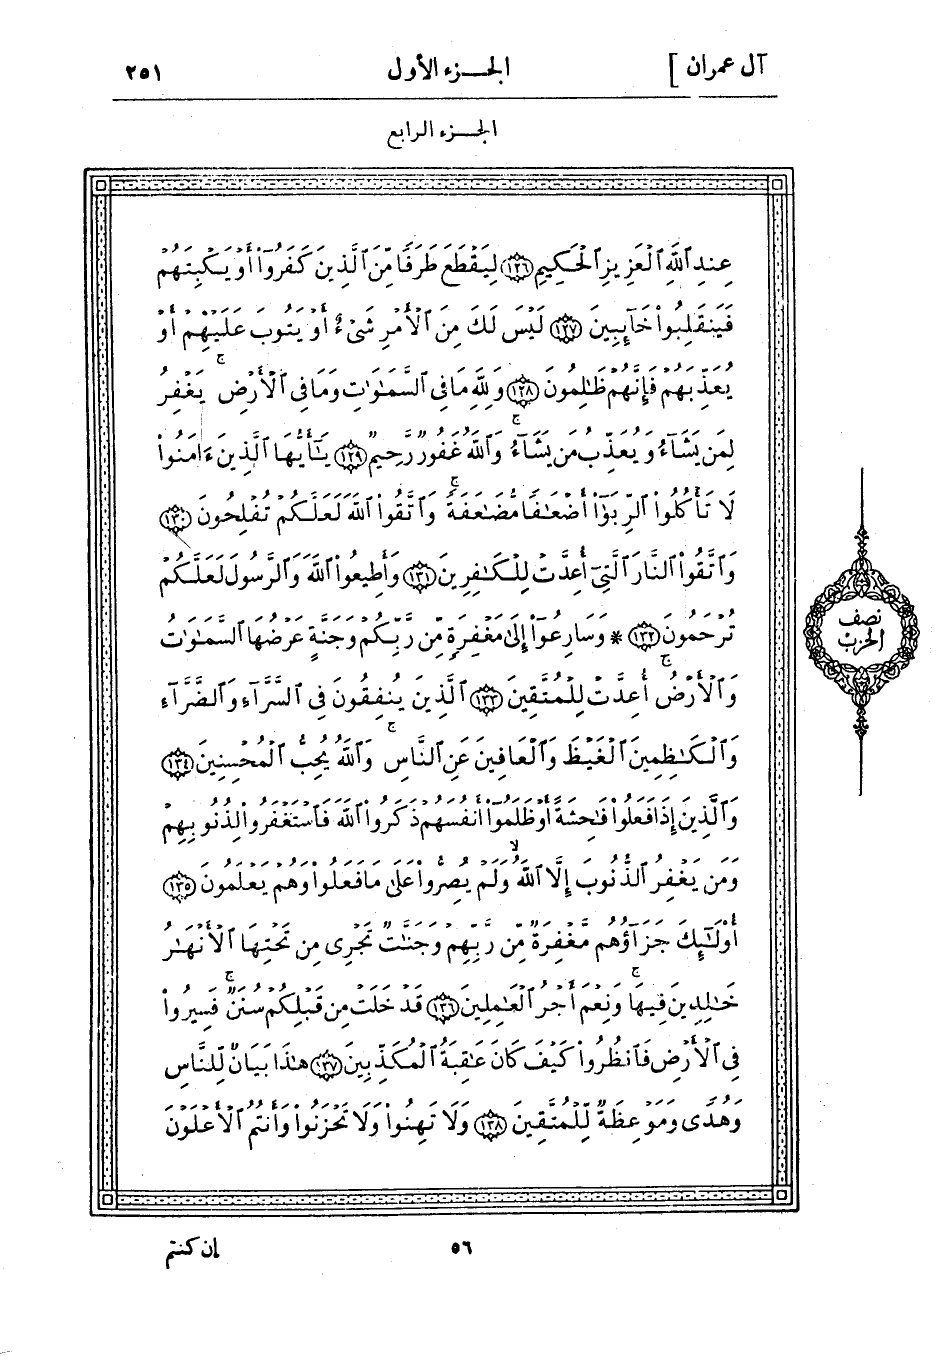 آل عمران ] الجزء الأول ٢٥١
الجزء الرابع
عِندِ ٱللَّهِ ٱلْعَزِيزِ ٱلْحَكِيمِ ﴿١٢٦﴾ لِيَقْطَعَ طَرَفًا مِّنَ ٱلَّذِينَ كَفَرُوٓا۟ أَوْ يَكْبِتَهُمْ
فَيَنقَلِبُوا۟ خَآئِبِينَ ﴿١٢٧﴾ لَيْسَ لَكَ مِنَ ٱلْأَمْرِ شَىْءٌ أَوْ يَتُوبَ عَلَيْهِمْ أَوْ
يُعَذِّبَهُمْ فَإِنَّهُمْ ظَٰلِمُونَ ﴿١٢٨﴾ وَلِلَّهِ مَا فِى ٱلسَّمَٰوَٰتِ وَمَا فِى ٱلْأَرْضِ ۚ يَغْفِرُ
لِمَن يَشَآءُ وَيُعَذِّبُ مَن يَشَآءُ ۚ وَٱللَّهُ غَفُورٌ رَّحِيمٌ ﴿١٢٩﴾ يَٰٓأَيُّهَا ٱلَّذِينَ ءَامَنُوا۟
لَا تَأْكُلُوا۟ ٱلرِّبَوٰٓا۟ أَضْعَٰفًا مُّضَٰعَفَةً ۖ وَٱتَّقُوا۟ ٱللَّهَ لَعَلَّكُمْ تُفْلِحُونَ ﴿١٣٠﴾
وَٱتَّقُوا۟ ٱلنَّارَ ٱلَّتِىٓ أُعِدَّتْ لِلْكَٰفِرِينَ ﴿١٣١﴾ وَأَطِيعُوا۟ ٱللَّهَ وَٱلرَّسُولَ لَعَلَّكُمْ
تُرْحَمُونَ ﴿١٣٢﴾ * وَسَارِعُوٓا۟ إِلَىٰ مَغْفِرَةٍ مِّن رَّبِّكُمْ وَجَنَّةٍ عَرْضُهَا ٱلسَّمَٰوَٰتُ
نصف
الحزب
وَٱلْأَرْضُ أُعِدَّتْ لِلْمُتَّقِينَ ﴿١٣٣﴾ ٱلَّذِينَ يُنفِقُونَ فِى ٱلسَّرَّآءِ وَٱلضَّرَّآءِ
وَٱلْكَٰظِمِينَ ٱلْغَيْظَ وَٱلْعَافِينَ عَنِ ٱلنَّاسِ ۗ وَٱللَّهُ يُحِبُّ ٱلْمُحْسِنِينَ ﴿١٣٤﴾
وَٱلَّذِينَ إِذَا فَعَلُوا۟ فَٰحِشَةً أَوْ ظَلَمُوٓا۟ أَنفُسَهُمْ ذَكَرُوا۟ ٱللَّهَ فَٱسْتَغْفَرُوا۟ لِذُنُوبِهِمْ
وَمَن يَغْفِرُ ٱلذُّنُوبَ إِلَّا ٱللَّهُ وَلَمْ يُصِرُّوا۟ عَلَىٰ مَا فَعَلُوا۟ وَهُمْ يَعْلَمُونَ ﴿١٣٥﴾
أُو۟لَٰٓئِكَ جَزَآؤُهُم مَّغْفِرَةٌ مِّن رَّبِّهِمْ وَجَنَّٰتٌ تَجْرِى مِن تَحْتِهَا ٱلْأَنْهَٰرُ
خَٰلِدِينَ فِيهَا ۚ وَنِعْمَ أَجْرُ ٱلْعَٰمِلِينَ ﴿١٣٦﴾ قَدْ خَلَتْ مِن قَبْلِكُمْ سُنَنٌ ۚ فَسِيرُوا۟
فِى ٱلْأَرْضِ فَٱنظُرُوا۟ كَيْفَ كَانَ عَٰقِبَةُ ٱلْمُكَذِّبِينَ ﴿١٣٧﴾ هَٰذَا بَيَانٌ لِّلنَّاسِ
وَهُدًى وَمَوْعِظَةٌ لِّلْمُتَّقِينَ ﴿١٣٨﴾ وَلَا تَهِنُوا۟ وَلَا تَحْزَنُوا۟ وَأَنتُمُ ٱلْأَعْلَوْنَ
٥٦ إن كنتم